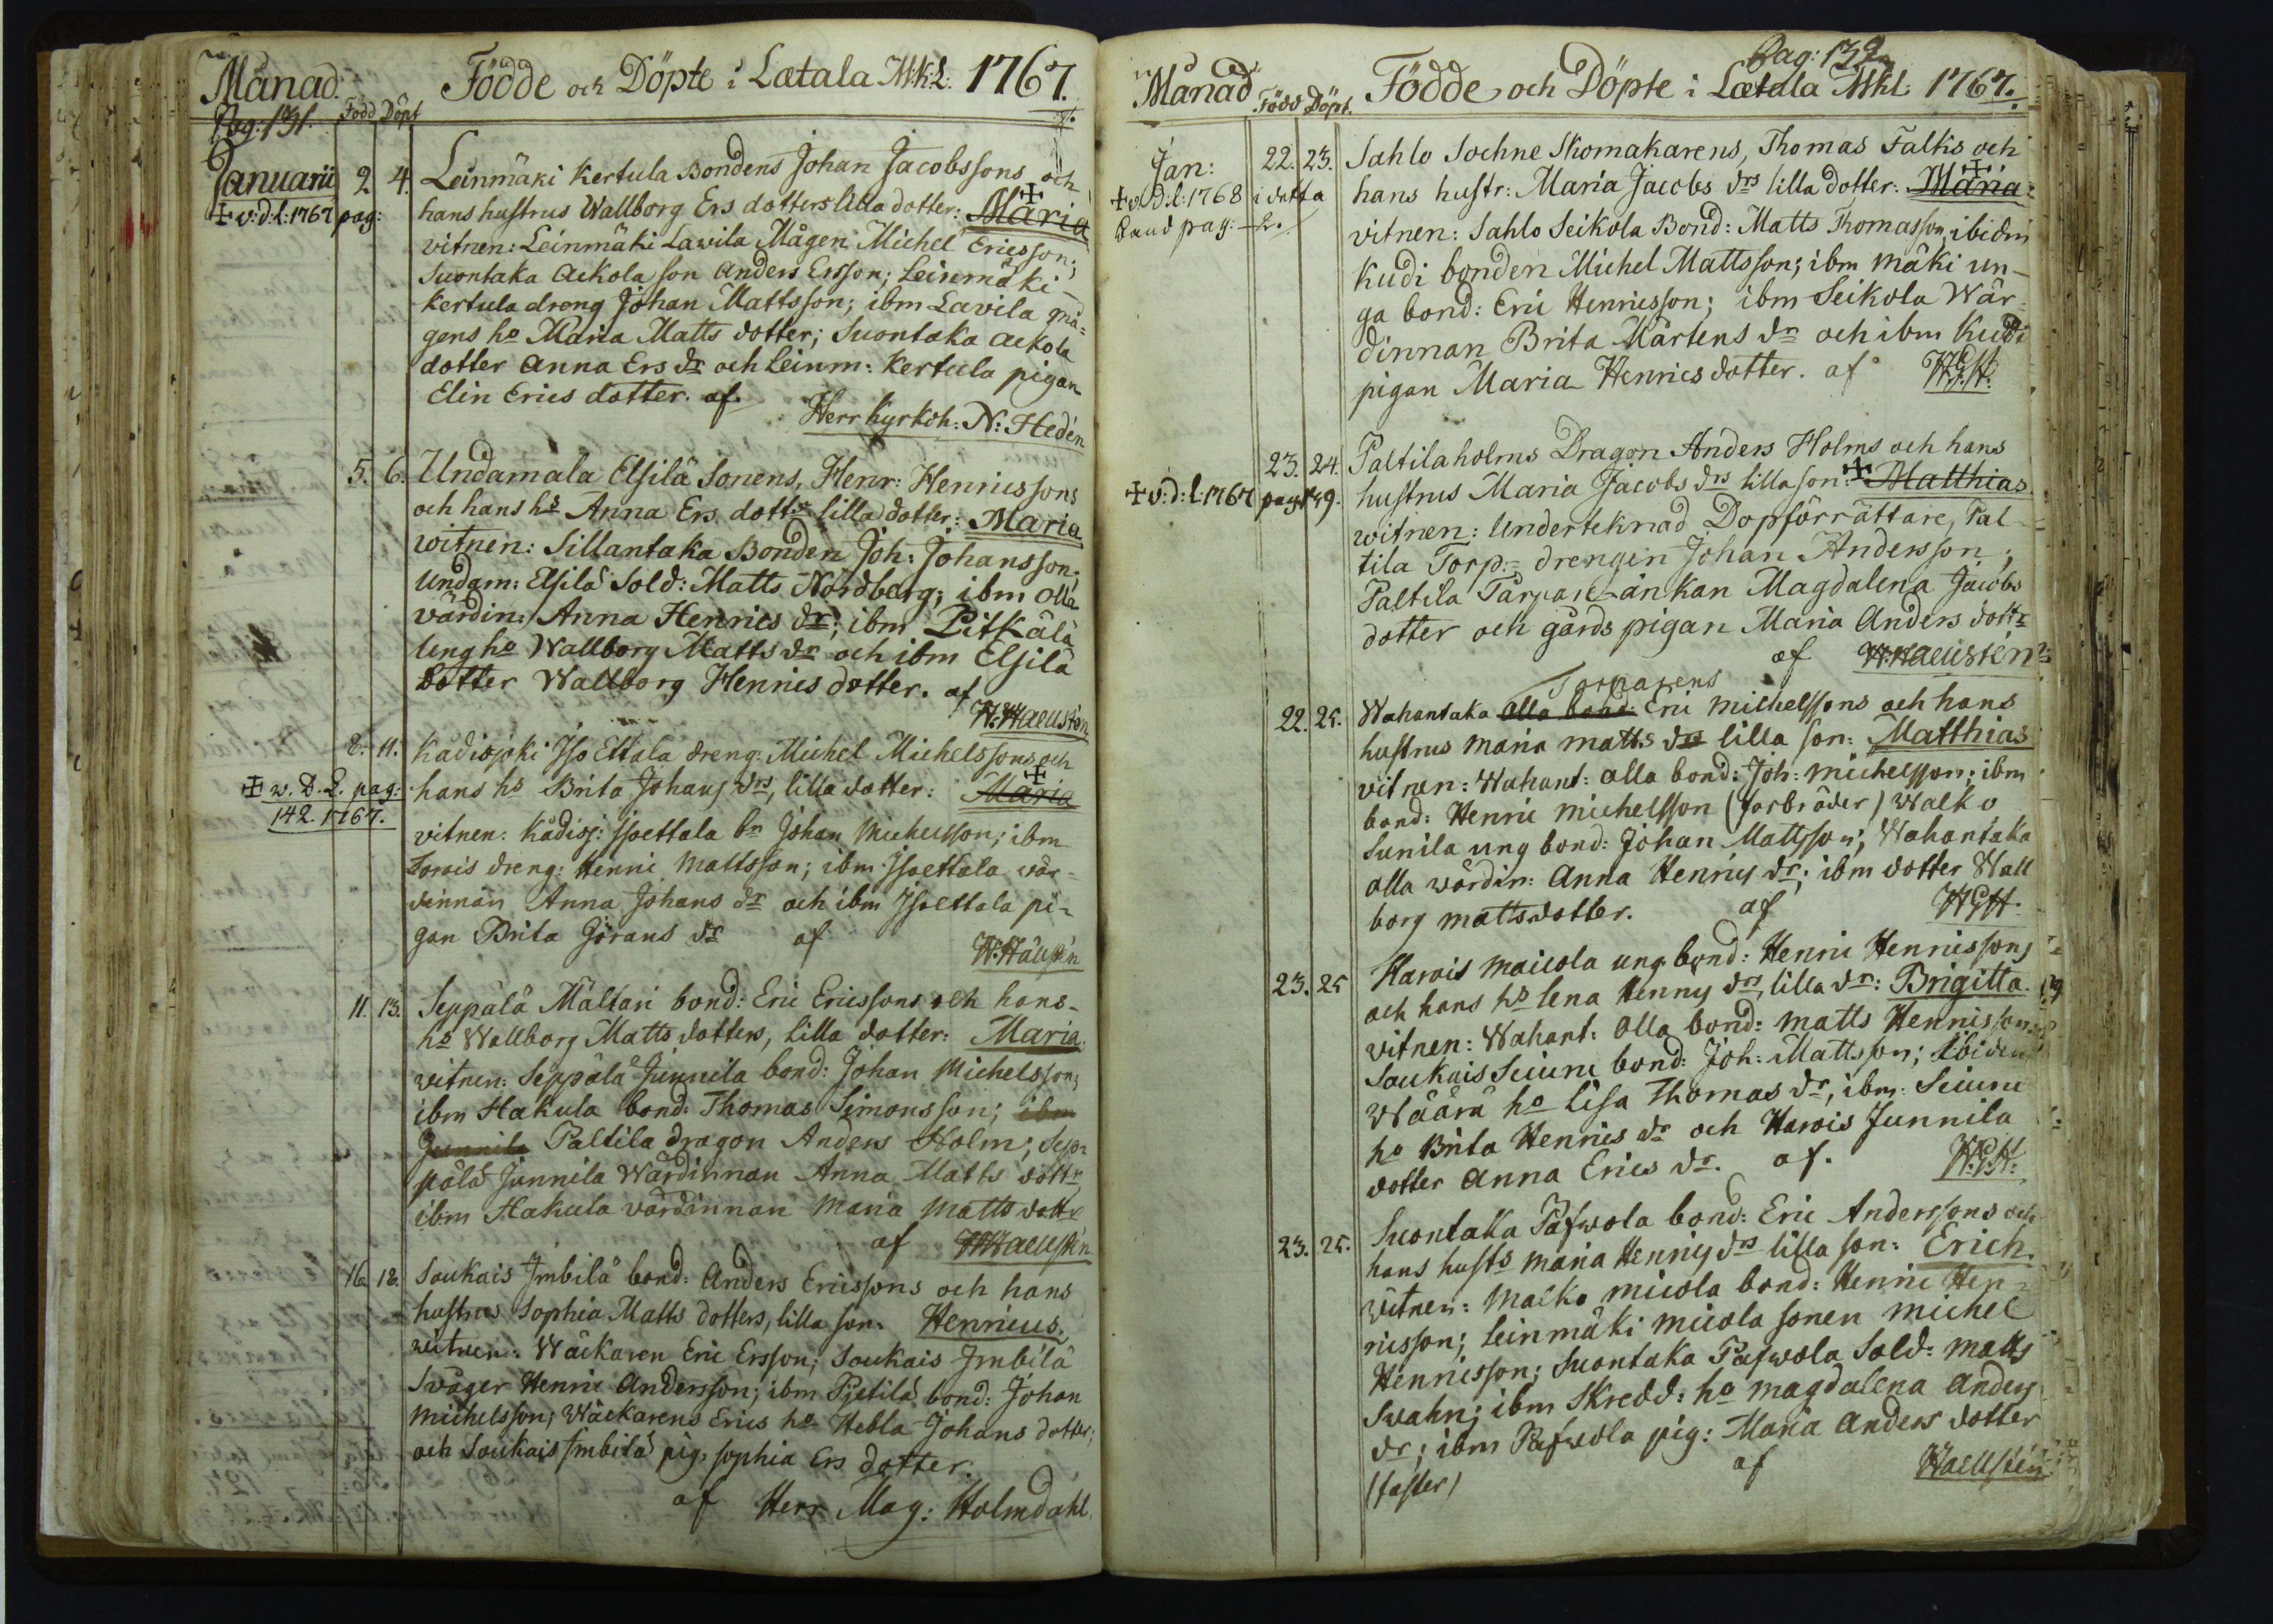 Månad. Födde och Döpte i Lætala M:k:L: 1767.
Pag: 131. Född Döpt
Januarii 2 4. Leinmäki Kertula Bondens Johan Jacobssons och
✝ v:d:l:1767 pag: hans hustrus Wallborg Ers dotters lilla dotter: Maria
vitnen: Leinmäki Lavila Mågen Michel Ericsson;
Suontaka Aekola son Anders Ersson; Leinmäki
Kertula dreng Johan Mattsson; ibm Lavila må-
gens ho Maria Matts dotter; Suontaka Aekola
dotter Anna Ers dr och Leinm: Kertula pigan
Elin Erics dotter. af.
Herr Kyrkoh: N: Hedén
5. 6. Undamala Elsilä Sonens, Henr: Henricssons
och hans hs Anna Ers dottrs lilla dotter: Maria
witnen: Sillantaka Bonden Joh: Johansson;
Undam: Elsilä Sold: Matts Nordberg; ibm Olla
värdin: Anna Henrics dr; ibm Pitkälä
Ung ho Wallborg Matts dr och ibm Elsilä
Dotter Wallborg Henrics dotter. af
W. Haeusten
8. 11. Kådisjoki Iso Ettala dreng: Michel Michelssons och
✝ w. D. L. pag: hans hs Brita Johans drs, lilla dotter: Maria
142. 1767.
vitnen: Kådisj: Isoettala bn Johan Michelsson; ibm
dreng: Henric Mattsson; ibm Isoettala vär-
dinnan Anna Johans dr och ibm Isoettala pi-
gan Brita Görans dr af
W. Häusten
11. 13. Seppälä Mältari bond: Eric Ericssons och hans
ho Wallborg Matts dotters, lilla dotter: Maria.
vitnen: Seppälä Junnila bond: Johan Michelsson;
ibm Hakula bond: Thomas Simonsson; ibm
Junnila Paltila dragon Anders Holm; Sep-
pälä Junnila Wärdinnan Anna Matts dottr
ibm Hakula värdinnan Maria Matts dottr
af W. Haeusten
16. 18. Soukais Imbilä bond: Anders Ericssons och hans
hustrus Sophia Matts dotters, lilla son. Henricus.
witnen: Wäckaren Eric Ersson; Soukais Imbilä
Svåger Henric Andersson; ibm Pietilä bond: Johan
Michelsson; Wäckarens Erics ho Hebla Johans dotter;
och Soukais Imbilä pig: Sophia Ers dotter.
af Herr Mag: Holmdahl.
Pag: 132
Månad Född Döpt. Födde och Döpte i Lætala Mkl: 1767.
Jan: 22. 23. Sahlo Sockne Skomakarens, Thomas Falks och
✝ v.d.l:1768 i detta hans hustr: Maria Jacobs drs lilla dotter: Maria
Band pag: 2. vitnen: Sahlo Seikola Bond: Matts Thomasson, ibidm
Kudi bonden Michel Mattsson; ibm Mäki un-
ga bond: Eric Henricsson; ibm Seikola Wär-
dinnan Brita Mårtens dr och ibm Kudi
pigan Maria Henrics dotter. af W.G.H.
23. 24. Paltilaholms Dragon Anders Holms och hans
✝ v:d:l:1767 pag 149. hustrus Maria Jacobs drs lilla son: Matthias
witnen: Underteknad Dopförrättare, Pal-
tila Torp- drengen Johan Andersson;
Paltila Tårpar-änkan Magdalena Jacobs
dotter och gårds pigan Maria Anders dottr
af W. Haeustén
Torparens
22. 25. Wahantaka olla bond: Eric Michelssons och hans
hustrus Maria Matts drs lilla son: Matthias
vitnen: Wahant: olla bond: Joh: Michelsson; ibm
bond: Henric Michelsson (farbröder) Walko
Sunila ung bond: Johan Mattsson; Wahantaka
olla wärdin: Anna Henrics dr; ibm dotter Wall
borg Matts dotter. af WGH.
23. 25 Harois Maicola ung bond: Henric Henricssons
och hans hs Lena Henrics drs, lilla dr: Brigitta.
vitnen: Wahant: Olla bond: Matts Henricsson;
Soukais Seiuni bond: Joh: Mattsson; Ibidem
Wäärä ho Lisa Thomas dr, ibm: Seiuni
ho Brita Henrics dr och Harois Junnila
dotter Anna Erics dr. af. W.G.H.
23. 25. Suontaka Pafwola bond: Eric Anderssons och
hans husts Maria Henrics drs lilla son: Erich.
witnen: Malko Micola bond: Henric Hen-
ricsson; Leinmäki Micola sonen Michel
Henricsson; Suontaka Pafwola Sold: Matts
Svahn; ibm Skredd: ho Magdalena Anders
dr; ibm Pafwola pig: Maria Anders dotter
(faster) af Haeustén